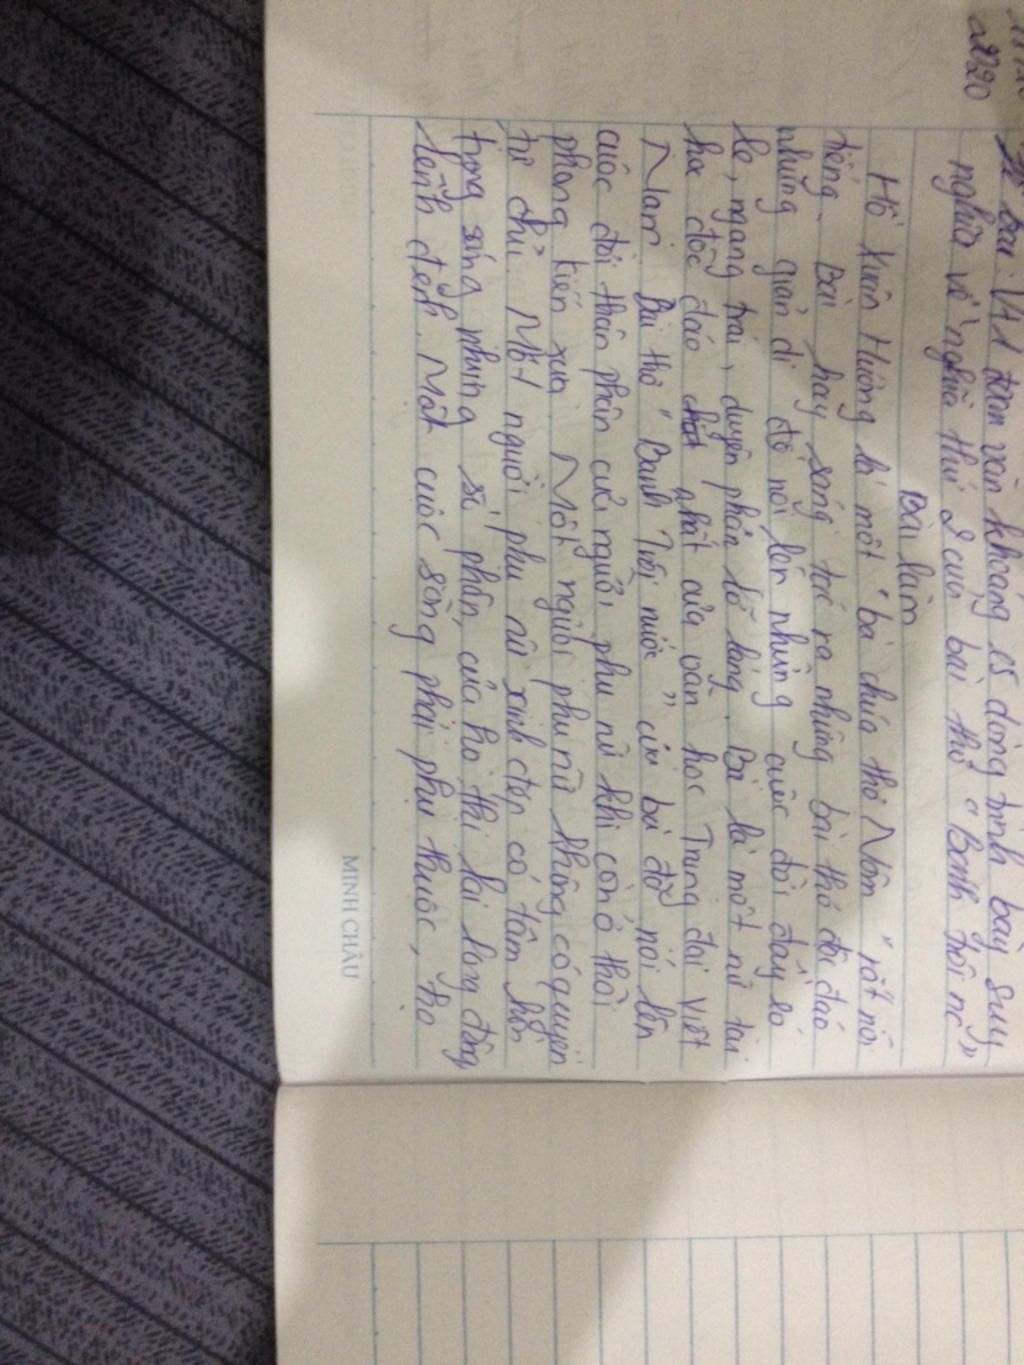 2020
Đề bài: Viết đoạn văn khoảng 15 dòng trình bày suy
nghĩ về nghĩa thứ 2 của bài thơ "Bánh trôi nc"
Bài làm
Hồ Xuân Hương là một "bà chúa thơ Nôm" rất nổi
tiếng. Bà hay sáng tác ra những bài thơ độc đáo
nhưng giản dị để nói lên những cuộc đời đầy éo
le, ngang trái, duyên phận lỡ làng. Bà là một nữ tài
hoa độc đáo nhất của văn học Trung đại Việt
Nam. Bài thơ "Bánh trôi nước" của bà đã nói lên
cuộc đời thân phận của người phụ nữ khi còn ở thời
phong kiến xưa. Một người phụ nữ không có quyền
tự chủ. Một người phụ nữ xinh đẹp có tâm hồn
trong sáng nhưng số phận của họ thì lại long đong
lênh đênh. Một cuộc sống phải phụ thuộc, họ
MINH CHÂU